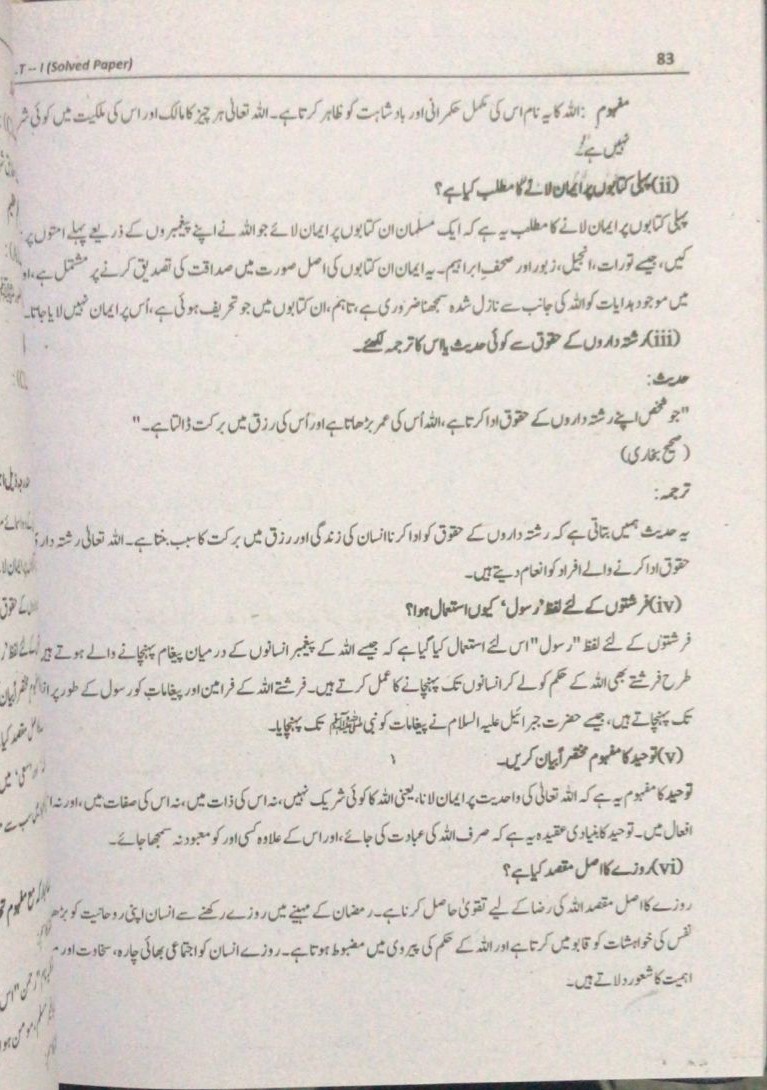 .T – I (Solved Paper) 83
مفہوم: اللہ کا یہ نام اس کی مکمل حکمرانی اور بادشاہت کو ظاہر کرتا ہے۔ اللہ تعالیٰ ہر چیز کا مالک اور اس کی ملکیت میں کوئی شر
نہیں ہے۔
(ii) پہلی کتابوں پر ایمان لانے کا مطلب کیا ہے؟
پہلی کتابوں پر ایمان لانے کا مطلب یہ ہے کہ ایک مسلمان ان کتابوں پر ایمان لائے جو اللہ نے اپنے پیغمبروں کے ذریعے پہلے امتوں پر
کیں، جیسے تورات، انجیل، زبور اور صحف ابراہیم۔ یہ ایمان ان کتابوں کی اصل صورت میں صداقت کی تصدیق کرنے پر مشتمل ہے، او
میں موجود ہدایات کو اللہ کی جانب سے نازل شدہ سمجھنا ضروری ہے، تاہم، ان کتابوں میں جو تحریف ہوئی ہے، اُس پر ایمان نہیں لایا جاتا۔
(iii) رشتہ داروں کے حقوق سے کوئی حدیث یا اس کا ترجمہ لکھئے۔
حدیث:
"جو شخص اپنے رشتہ داروں کے حقوق ادا کرتا ہے، اللہ اُس کی عمر بڑھاتا ہے اور اُس کی رزق میں برکت ڈالتا ہے۔"
(صحیح بخاری)
ترجمہ:
یہ حدیث ہمیں بتاتی ہے کہ رشتہ داروں کے حقوق کو ادا کرنا انسان کی زندگی اور رزق میں برکت کا سبب بنتا ہے۔ اللہ تعالیٰ رشتہ دارو
حقوق ادا کرنے والے افراد کو انعام دیتے ہیں۔
(iv) فرشتوں کے لئے لفظ 'رسول' کیوں استعمال ہوا؟
فرشتوں کے لئے لفظ "رسول" اس لئے استعمال کیا گیا ہے کہ جیسے اللہ کے پیغمبر انسانوں کے درمیان پیغام پہنچانے والے ہوتے ہیں
طرح فرشتے بھی اللہ کے حکم کو لے کر انسانوں تک پہنچانے کا عمل کرتے ہیں۔ فرشتے اللہ کے فرامین اور پیغامات کو رسول کے طور پر
تک پہنچاتے ہیں، جیسے حضرت جبرائیل علیہ السلام نے پیغامات کو نبی ﷺ تک پہنچایا۔
(v) توحید کا مفہوم مختصراً بیان کریں۔
توحید کا مفہوم یہ ہے کہ اللہ تعالیٰ کی واحدیت پر ایمان لانا، یعنی اللہ کا کوئی شریک نہیں، نہ اس کی ذات میں، نہ اس کی صفات میں، اور نہ
افعال میں۔ توحید کا بنیادی عقیدہ یہ ہے کہ صرف اللہ کی عبادت کی جائے، اور اس کے علاوہ کسی اور کو معبود نہ سمجھا جائے۔
(vi) روزے کا اصل مقصد کیا ہے؟
روزے کا اصل مقصد اللہ کی رضا کے لیے تقویٰ حاصل کرنا ہے۔ رمضان کے مہینے میں روزے رکھنے سے انسان اپنی روحانیت کو بڑھ
نفس کی خواہشات کو قابو میں کرتا ہے اور اللہ کے حکم کی پیروی میں مضبوط ہوتا ہے۔ روزے انسان کو اجتماعی بھائی چارہ، سخاوت اور
اہمیت کا شعور دلاتے ہیں۔